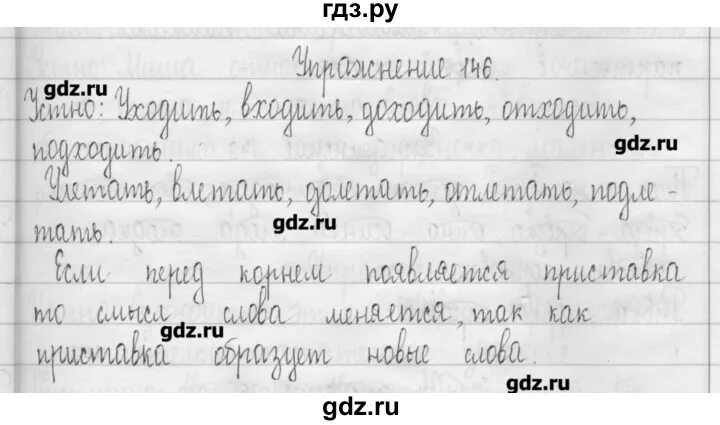 гдз.ру
Упражнение 146.
gdz.ru
Устно: Уходить, входить, доходить, отходить,
gdz.ru
подходить.
Улетать, влетать, долетать, отлетать, подле-
gdz.ru
тать.
Если перед корнем появляется приставка
то смысл слова меняется, так как
gdz.ru
приставка образует новые слова.
gdz.ru
gdz.ru